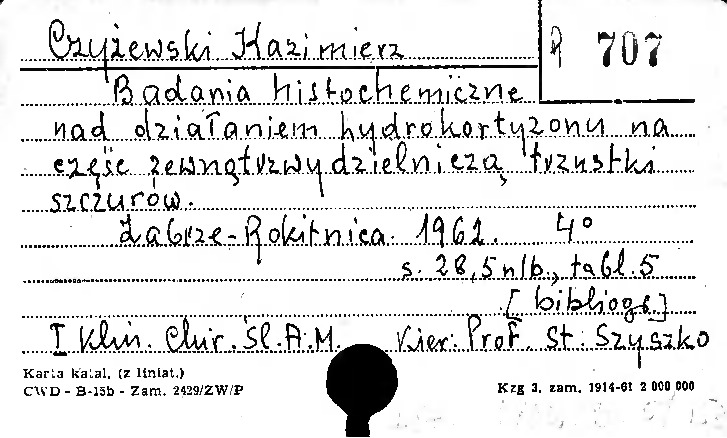 Czyżewski Kazimierz
R 707
Badania histochemiczne
nad działaniem hydrokortyzonu na
część zewnątrzwydzielniczą trzustki
szczurów.
Zabrze-Rokitnica. 1962. 4°
s. 28,5 nlb., tabl. 5
[bibliogr.]
I Klin. Chir. Śl. A.M. Kier: Prof. St. Szyszko
Karta katal. (z liniat.)
CWD - B-15b - Zam. 2429/ZW/P
Kzg 3, zam. 1914-61 2 000 000